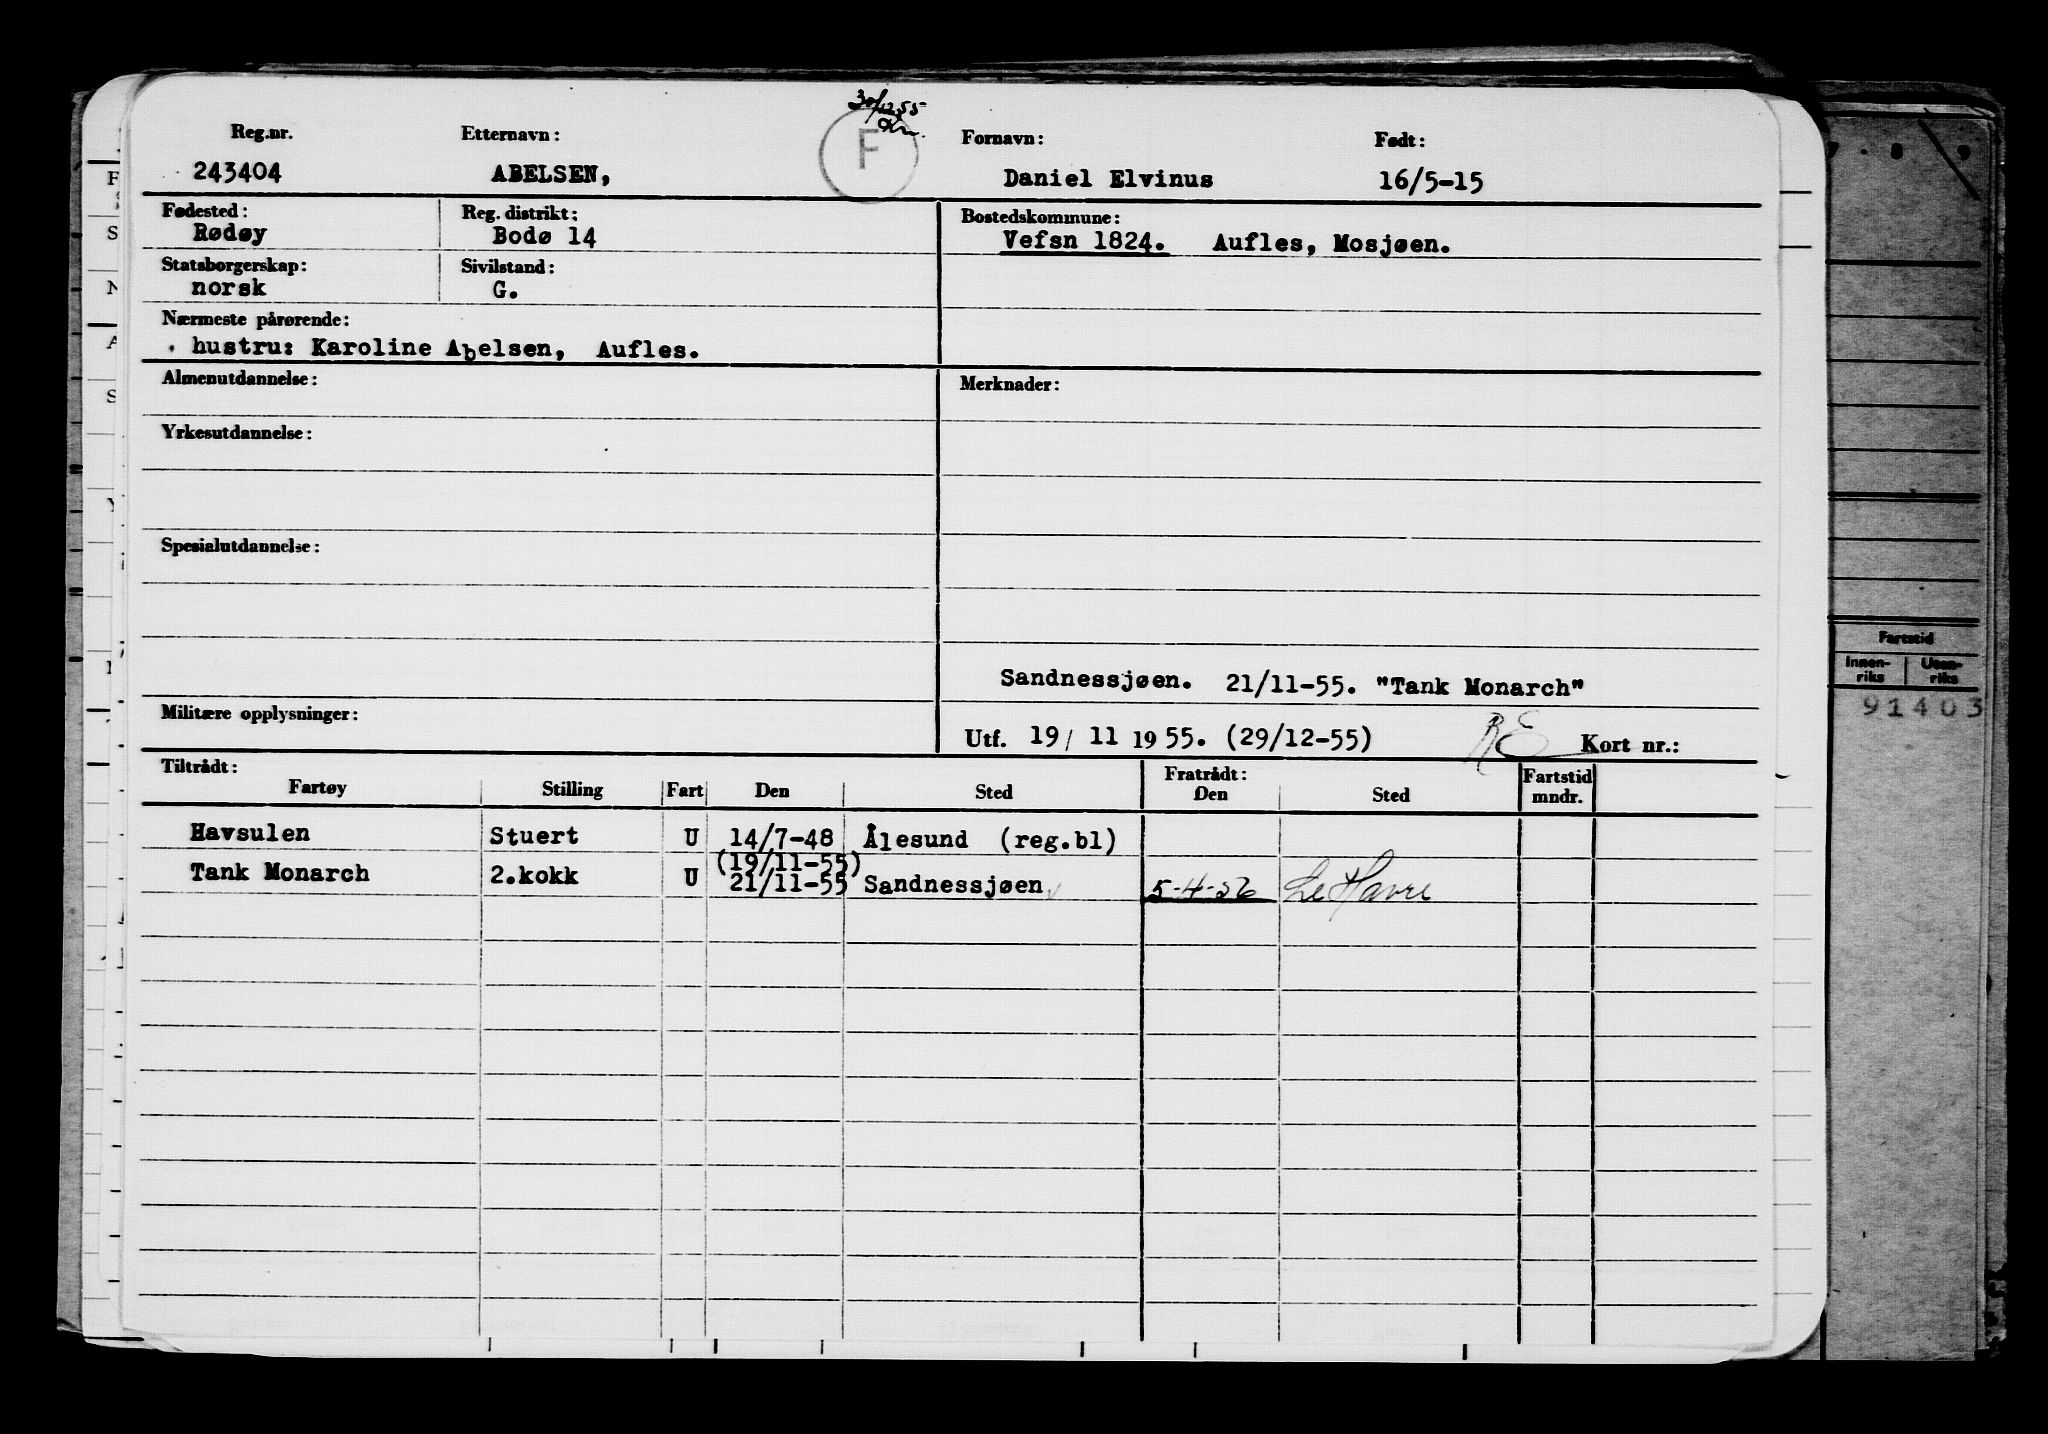 30/12 55
F
Reg.nr. Etternavn: Fornavn: Født:
243404 ABELSEN, Daniel Elvinus 16/5-15
Fødested: Reg. distrikt: Bostedskommune:
Rødøy Bodø 14 Vefsn 1824. Aufles, Mosjøen.
Statsborgerskap: Sivilstand:
norsk G.
Nærmeste pårørende:
hustru: Karoline Abelsen, Aufles.
Almenutdannelse: Merknader:
Yrkesutdannelse:
Spesialutdannelse:
Sandnessjøen. 21/11-55. "Tank Monarch"
Militære opplysninger:
Utf. 19/ 11 19 55. (29/12-55) RE Kort nr.:
Tiltrådt: Fratrådt:
Fartøy Stilling Fart Den Sted Den Sted Fartstid mndr.
Havsulen Stuert U 14/7-48 Ålesund (reg.bl)
(19/11-55)
Tank Monarch 2.kokk U 21/11-55 Sandnessjøen 5-4-56 Le Havre
7 . 8 9
Fartstid
Innen-riks Uten-riks
91403